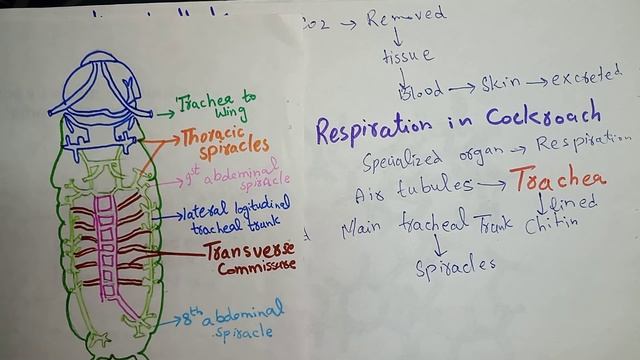 Trachea to
wing
Thoracic
spiracles
9st abdominal
spiracle
lateral logitudinal
tracheal trunk
Transverse
Commissure
8th abdominal
spiracle
CO2 → Removed
↓
tissue
↓
Blood → Skin → excreted
Respiration in Cockroach
Specialized organ → Respiration
Air tubules → Trachea
↓ lined
Main tracheal Trunk Chitin
↓
Spiracles